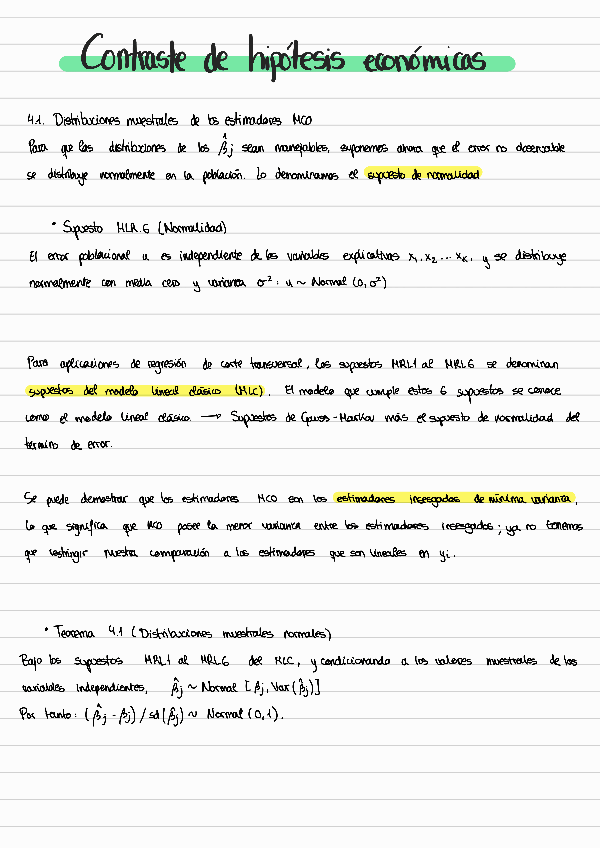 Contraste de hipótesis económicas
4.1. Distribuciones muestrales de los estimadores MCO
Para que las distribuciones de los β̂j sean manejables, suponemos ahora que el error no observable
se distribuye normalmente en la población. Lo denominamos el supuesto de normalidad
• Supuesto MLR.6 (Normalidad)
El error poblacional u es independiente de las variables explicativas x₁, x₂ ... xₖ, y se distribuye
normalmente con media cero y varianza σ²: u ~ Normal (0, σ²)
Para aplicaciones de regresión de corte transversal, los supuestos MRL1 al MRL6 se denominan
supuestos del modelo lineal clásico (MLC). El modelo que cumple estos 6 supuestos se conoce
como el modelo lineal clásico → Supuestos de Gauss-Markov más el supuesto de normalidad del
término de error.
Se puede demostrar que los estimadores MCO son los estimadores insesgados de mínima varianza,
lo que significa que MCO posee la menor varianza entre los estimadores insesgados; ya no tenemos
que restringir nuestra comparación a los estimadores que son lineales en yᵢ.
• Teorema 4.1 (Distribuciones muestrales normales)
Bajo los supuestos MRL1 al MRL6 del MLC, y condicionando a los valores muestrales de las
variables independientes, β̂j ~ Normal [βj, Var(β̂j)]
Por tanto: (β̂j - βj) / sd(β̂j) ~ Normal (0,1).